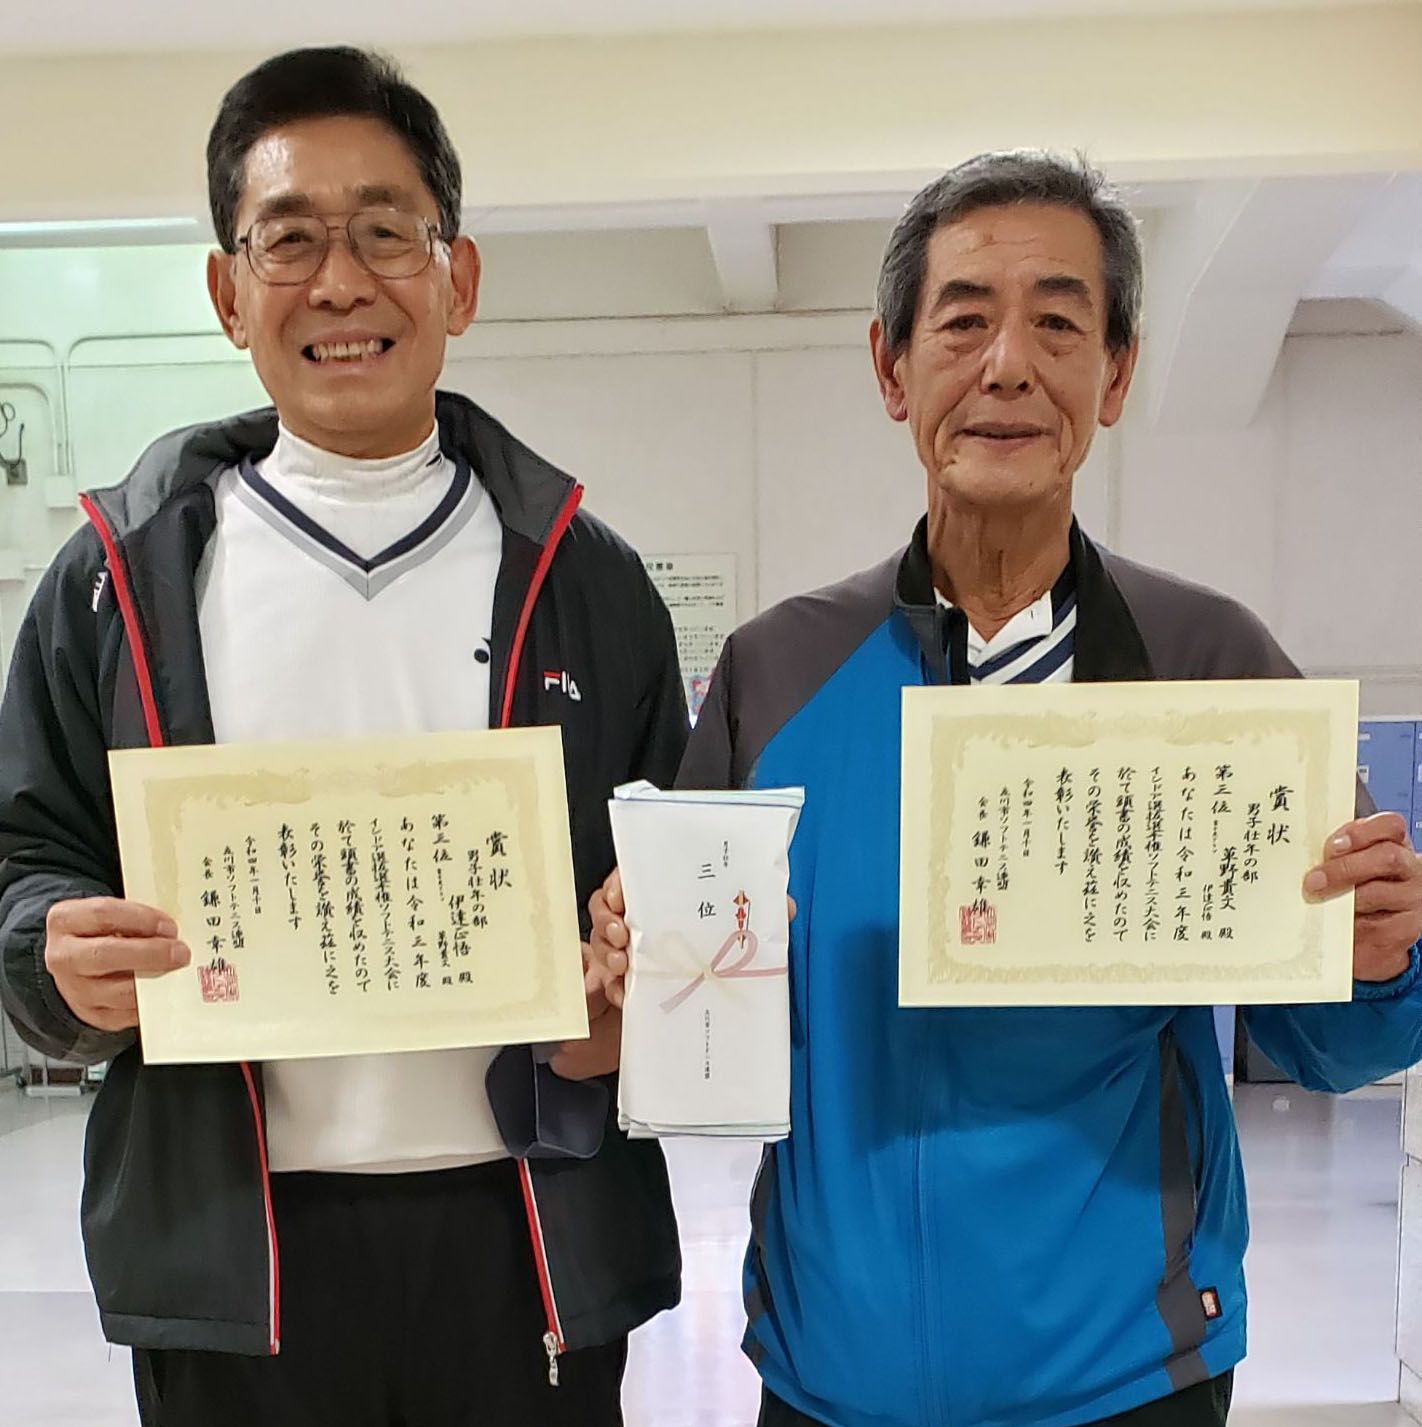 賞状
男子壮年の部
第三位
伊達正悟 殿
草野貴文 殿
あなたは令和三年度
インドア選抜選手権ソフトテニス大会に
於て頭書の成績を収めたので
その栄誉を讃え茲に之を
表彰いたします
令和四年一月十日
立川市ソフトテニス連盟
会長 鎌田幸雄
FILA
ELLA
三位
立川市ソフトテニス連盟
賞状
男子壮年の部
第三位
草野貴文 殿
伊達正悟 殿
あなたは令和三年度
インドア選抜選手権ソフトテニス大会に
於て頭書の成績を収めたので
その栄誉を讃え茲に之を
表彰いたします
令和四年一月十日
立川市ソフトテニス連盟
会長 鎌田幸雄
民憲章